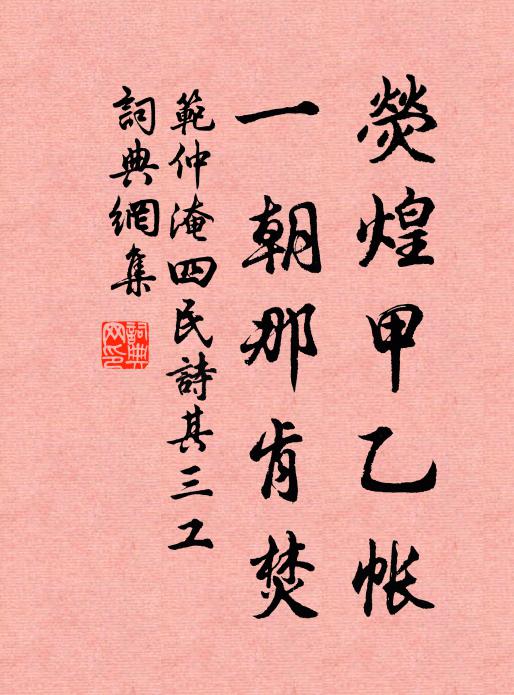 熒煌甲乙帳
一朝那肯焚
範仲淹四民詩其三工
詞典網集
詞典網印